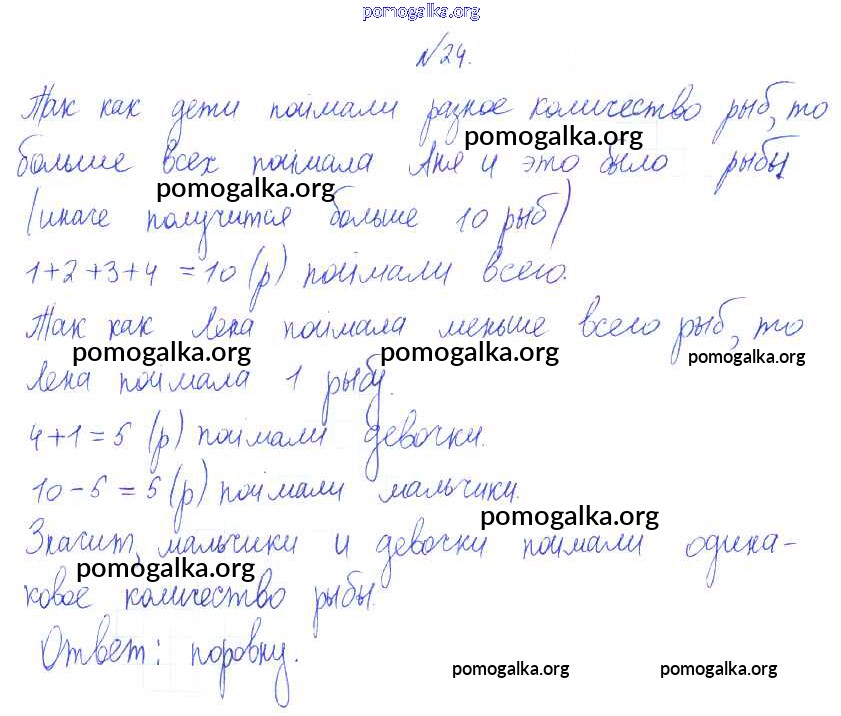 pomogalka.org
№24.
Так как дети поймали разное количество рыб, то
pomogalka.org
больше всех поймала Аня и это было рыбы
pomogalka.org
(иначе получится больше 10 рыб)
1+2+3+4 = 10 (р) поймали всего.
Так как Лена поймала меньше всего рыб, то
pomogalka.org pomogalka.org pomogalka.org
Лена поймала 1 рыбу.
4+1=5 (р) поймали девочки.
10-5=5 (р) поймали мальчики.
pomogalka.org
Значит, мальчики и девочки поймали одина-
pomogalka.org
ковое количество рыбы.
Ответ: поровну.
pomogalka.org pomogalka.org